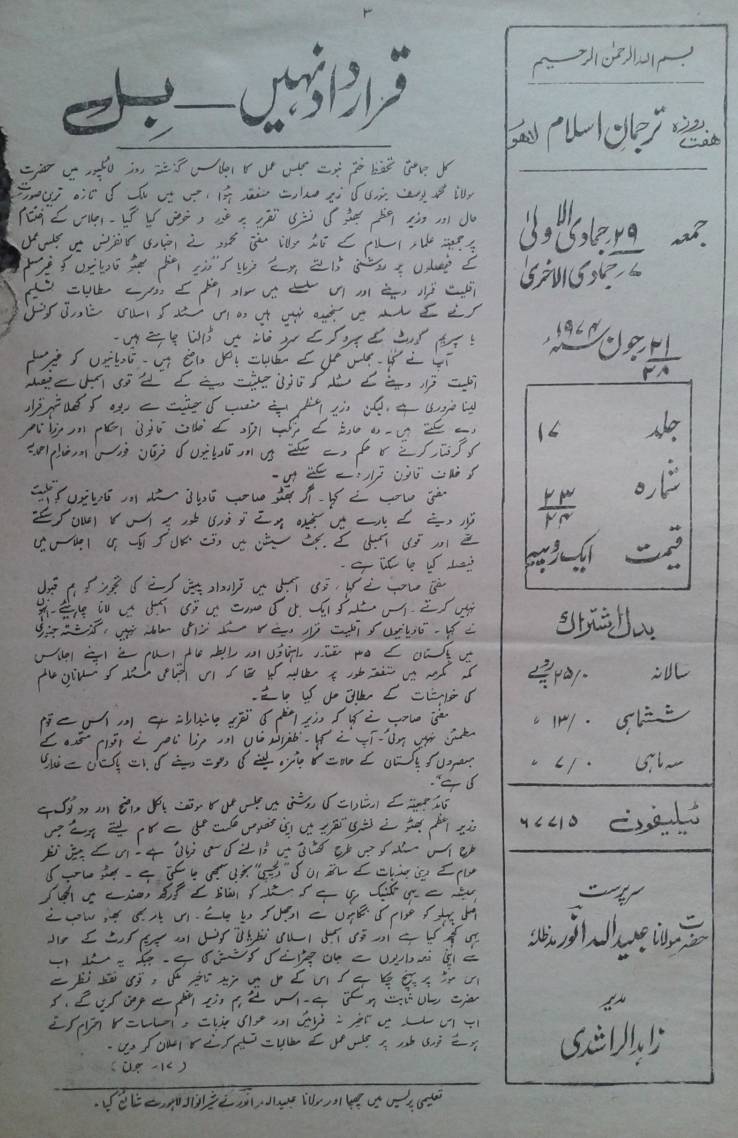 ۳
بسم اللہ الرحمٰن الرحیم
ہفت روزہ ترجمان اسلام لاہور
جمعہ ۲۹ جمادی الاولیٰ
۷ جمادی الاخریٰ
۲۱ جون ۱۹۷۴ سنہء
۲۸
جلد ۱۷
شمارہ ۲۳
۲۴
قیمت ایک روپیہ
بدل اشتراک
سالانہ ۲۵/۰ روپے
ششماہی ۱۳/۰ ״
سہ ماہی ۷/۰ ״
ٹیلیفون ۶۷۷۱۵
سرپرست
حضرت مولانا عبیداللہ انور مدظلہٗ
مدیر
زاہد الراشدی
قرارداد نہیں — بِل
کل جماعتی تحفظ ختم نبوت مجلس عمل کا اجلاس گذشتہ روز لائلپور میں حضرت
مولانا محمد یوسف بنوری کی زیر صدارت منعقد ہوا، جس میں ملک کی تازہ ترین صورت
حال اور وزیر اعظم بھٹو کی نشری تقریر پر غور و خوض کیا گیا۔ اجلاس کے اختتام
پر جمعیۃ علماء اسلام کے قائد مولانا مفتی محمود نے اخباری کانفرنس میں مجلس عمل
کے فیصلوں پر روشنی ڈالتے ہوئے فرمایا کہ "وزیر اعظم بھٹو قادیانیوں کو غیرمسلم
اقلیت قرار دینے اور اس سلسلے میں سواد اعظم کے دوسرے مطالبات تسلیم
کرنے کے سلسلہ میں سنجیدہ نہیں ہیں وہ اس مسئلہ کو اسلامی مشاورتی کونسل
یا سپریم کورٹ کے سپرد کر کے سرد خانہ میں ڈالنا چاہتے ہیں۔
آپ نے کہا۔ مجلس عمل کے مطالبات بالکل واضح ہیں۔ قادیانیوں کو غیرمسلم
اقلیت قرار دینے کے مسئلہ کو قانونی حیثیت دینے کے لئے قومی اسمبلی سے فیصلہ
لینا ضروری ہے، لیکن وزیر اعظم اپنے منصب کی حیثیت سے ربوہ کو کھلا شہر قرار
دے سکتے ہیں۔ وہ حادثہ کے مرتکب افراد کے خلاف قانونی احکام اور مرزا ناصر
کو گرفتار کرنے کا حکم دے سکتے ہیں اور قادیانیوں کی فرقان فورس اور خدام احمدیہ
کو خلاف قانون قرار دے سکتے ہیں۔
مفتی صاحب نے کہا۔ اگر بھٹو صاحب قادیانی مسئلہ اور قادیانیوں کو اقلیت
قرار دینے کے بارے میں سنجیدہ ہوتے تو فوری طور پر اس کا اعلان کر سکتے
تھے اور قومی اسمبلی کے بجٹ سیشن میں وقت نکال کر ایک ہی اجلاس میں
فیصلہ کیا جا سکتا ہے۔
مفتی صاحب نے کہا، قومی اسمبلی میں قرارداد پیش کرنے کی تجویز کو ہم قبول
نہیں کرتے۔ اس مسئلہ کو ایک بل کی صورت میں قومی اسمبلی میں لانا چاہیئے۔ انہوں
نے کہا۔ قادیانیوں کو اقلیت قرار دینے کا مسئلہ نزاعی معاملہ نہیں، گذشتہ جنوری
میں پاکستان کے ۳۵ مقتدر راہنماؤں اور رابطہ عالم اسلام نے اپنے اجلاس
مکہ مکرمہ میں متفقہ طور پر مطالبہ کیا تھا کہ اس اجتماعی مسئلہ کو مسلمانان عالم
کی خواہشات کے مطابق حل کیا جائے۔
مفتی صاحب نے کہا کہ وزیر اعظم کی تقریر جانبدارانہ ہے اور اس سے قوم
مطمئن نہیں ہوئی۔ آپ نے کہا۔ ظفراللہ خاں اور مرزا ناصر نے اقوام متحدہ کے
مبصروں کو پاکستان کے حالات کا جائزہ لینے کی دعوت دینے کی بات پاکستان سے غداری
کی ہے"۔
قائد جمعیۃ کے ارشادات کی روشنی میں مجلس عمل کا موقف بالکل واضح اور دو ٹوک ہے
وزیر اعظم بھٹو نے نشری تقریر میں اپنی مخصوص حکمت عملی سے کام لیتے ہوئے جس
طرح اس مسئلہ کو جس طرح کھٹائی میں ڈالنے کی سعی فرمائی ہے۔ اس کے پیش نظر
عوام کے دینی جذبات کے ساتھ ان کی "دلچسپی" بخوبی سمجھی جا سکتی ہے۔ بھٹو صاحب کی
ہمیشہ سے یہی تکنیک رہی ہے کہ مسئلہ کو الفاظ کے گورکھ دھندے میں الجھا کر
اصلی پہلو کو عوام کی نگاہوں سے اوجھل کر دیا جائے۔ اس بار بھی بھٹو صاحب نے
یہی کچھ کیا ہے اور قومی اسمبلی اسلامی نظریاتی کونسل اور سپریم کورٹ کے حوالہ
سے اپنی ذمہ داریوں سے جان چھڑانے کی کوشش کی ہے۔ جبکہ یہ مسئلہ اب
اس موڑ پر پہنچ چکا ہے کہ اس کے حل میں مزید تاخیر ملکی و قومی نقطہ نظر سے
مضرت رساں ثابت ہو سکتی ہے۔ اس لئے ہم وزیر اعظم سے عرض کریں گے، کو
اب اس سلسلہ میں تاخیر نہ فرمائیں اور عوامی جذبات و احساسات کا احترام کرتے
ہوئے فوری طور پر مجلس عمل کے مطالبات تسلیم کرنے کا اعلان کر دیں۔
(۱۷۔ جون)
تعلیمی پریس میں چھپا اور مولانا عبیداللہ انور نے شیرانوالہ لاہور سے شائع کیا۔